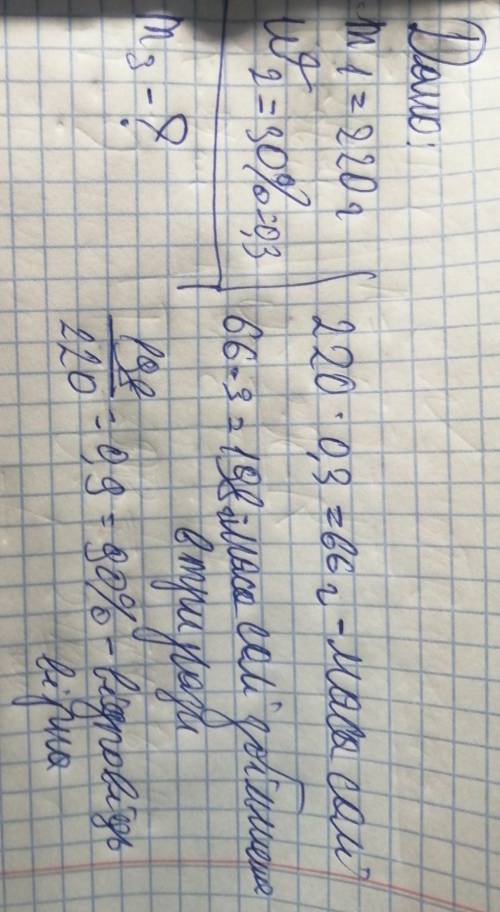 Дано:
m 1 = 220 г
W 2 = 30% = 0,3
m 3 - ?
220 · 0,3 = 66 г - маса солі
66 · 3 = 198 г маса солі збільшена
в три рази
198/220 = 0,9 = 90% - відповідь
вірна